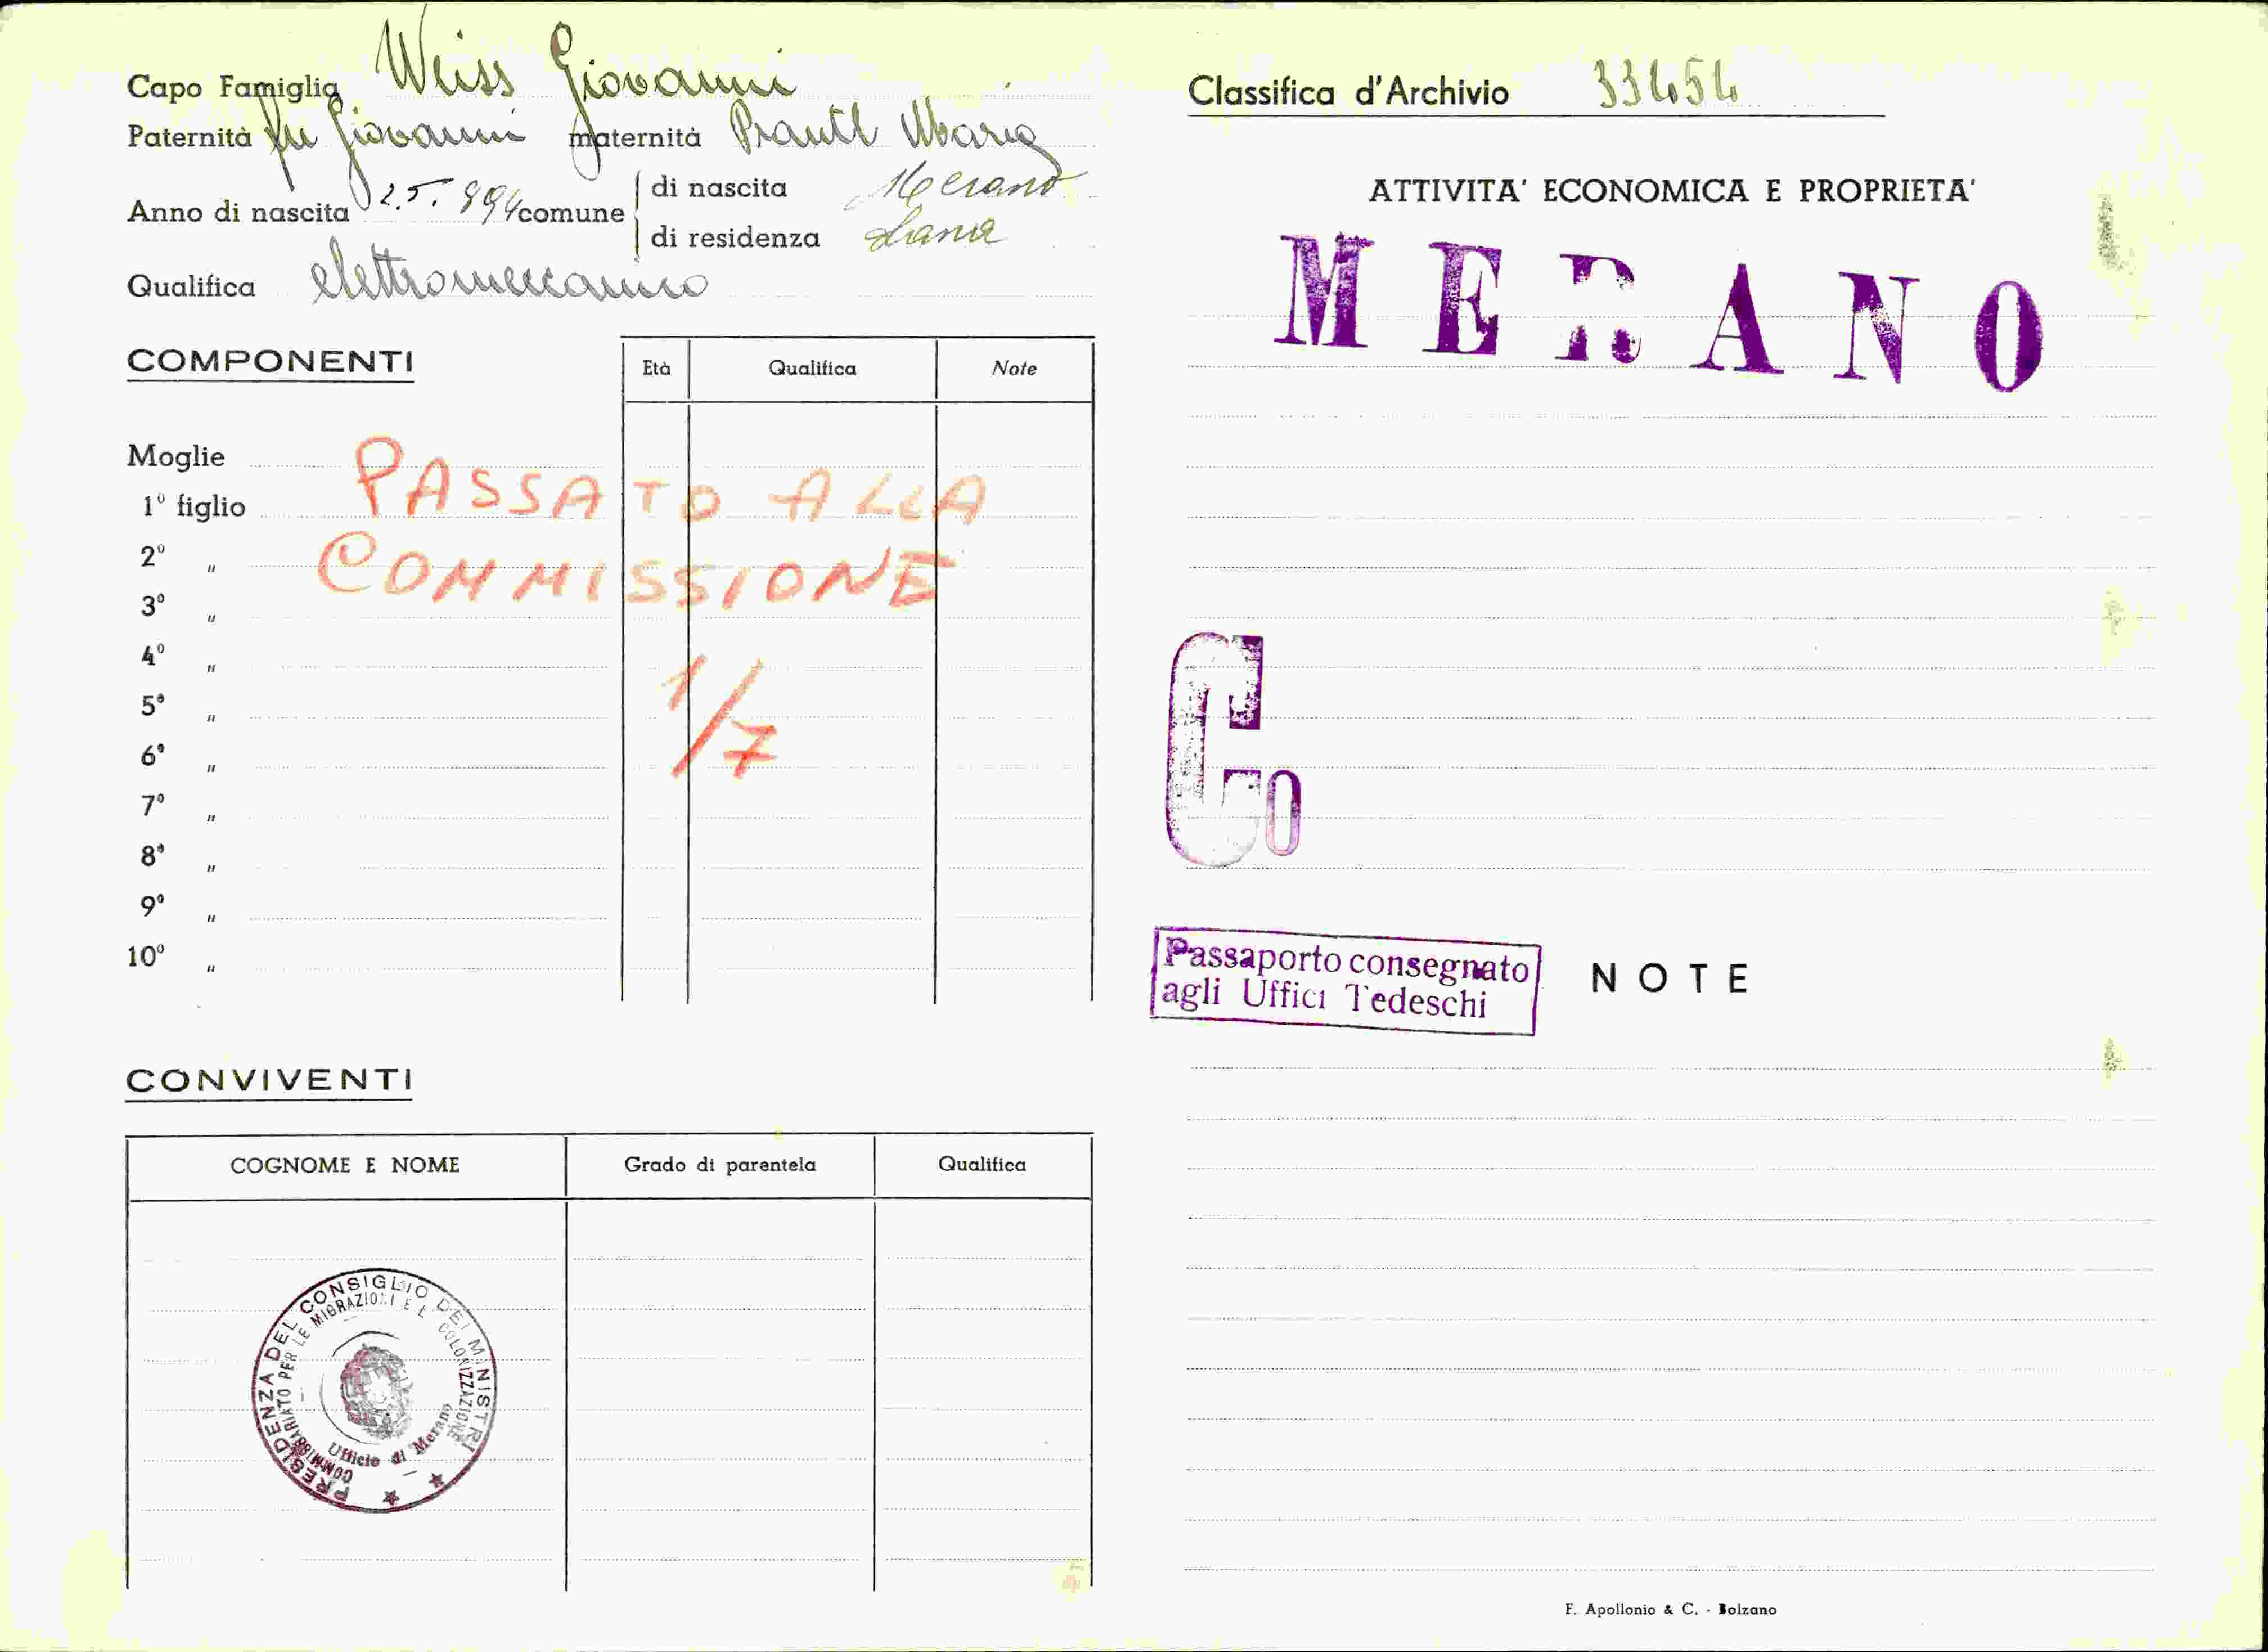 Capo Famiglia Weiss Giovanni
Paternità fu Giovanni maternità Prantl Maria
Anno di nascita 2.5.894 comune di nascita Merano
di residenza Lana
Qualifica elettromeccanico
COMPONENTI
Età Qualifica Note
Moglie
1º figlio
2º "
3º "
4º "
5º "
6º "
7º "
8º "
9º "
10º "
PASSATO ALLA
COMMISSIONE
1/7
CONVIVENTI
COGNOME E NOME Grado di parentela Qualifica
PRESIDENZA DEL CONSIGLIO DEI MINISTRI
COMMISSARIATO PER LE MIGRAZIONI E L COLONIZZAZIONE
Ufficio di Merano
Classifica d'Archivio 33454
ATTIVITA' ECONOMICA E PROPRIETA'
MERANO
Co
Passaporto consegnato
agli Uffici Tedeschi
NOTE
F. Apollonio & C. - Bolzano